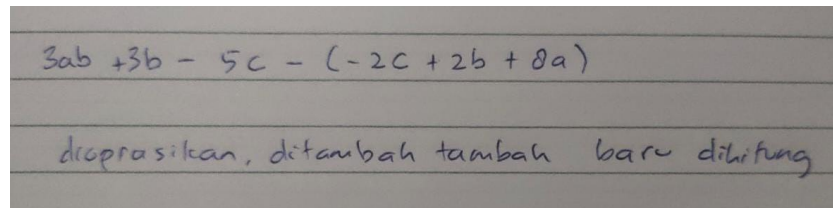 3ab + 3b - 5c - (-2c + 2b + 8a)
dioprasikan, ditambah tambah baru dihitung